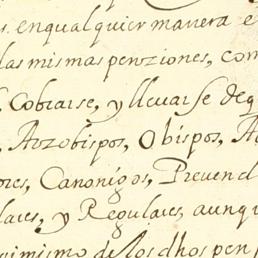 s. enqualquier manera e
las mismas penziones, com
Cobrarse, y llevarse de q
, Arzobispos, Obispos, A
ores, Canonigos, Prevend
lares, y Regulares, aunqu
ismo de los dhos pen